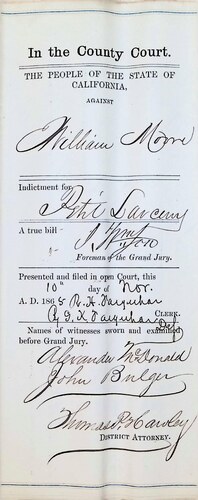 In the County Court.
THE PEOPLE OF THE STATE OF
CALIFORNIA,
AGAINST
William Moore
Indictment for
Petit Larceny
A true bill
Foreman of the Grand Jury.
Presented and filed in open Court, this
10th day of Nov.
A. D. 1865 W. H. Farquhar
CLERK.
By G. K. Farquhar Dep
Names of witnesses sworn and examined
before Grand Jury.
Alexander McDonald
John Bulger
Thomas P. Hawley
DISTRICT ATTORNEY.